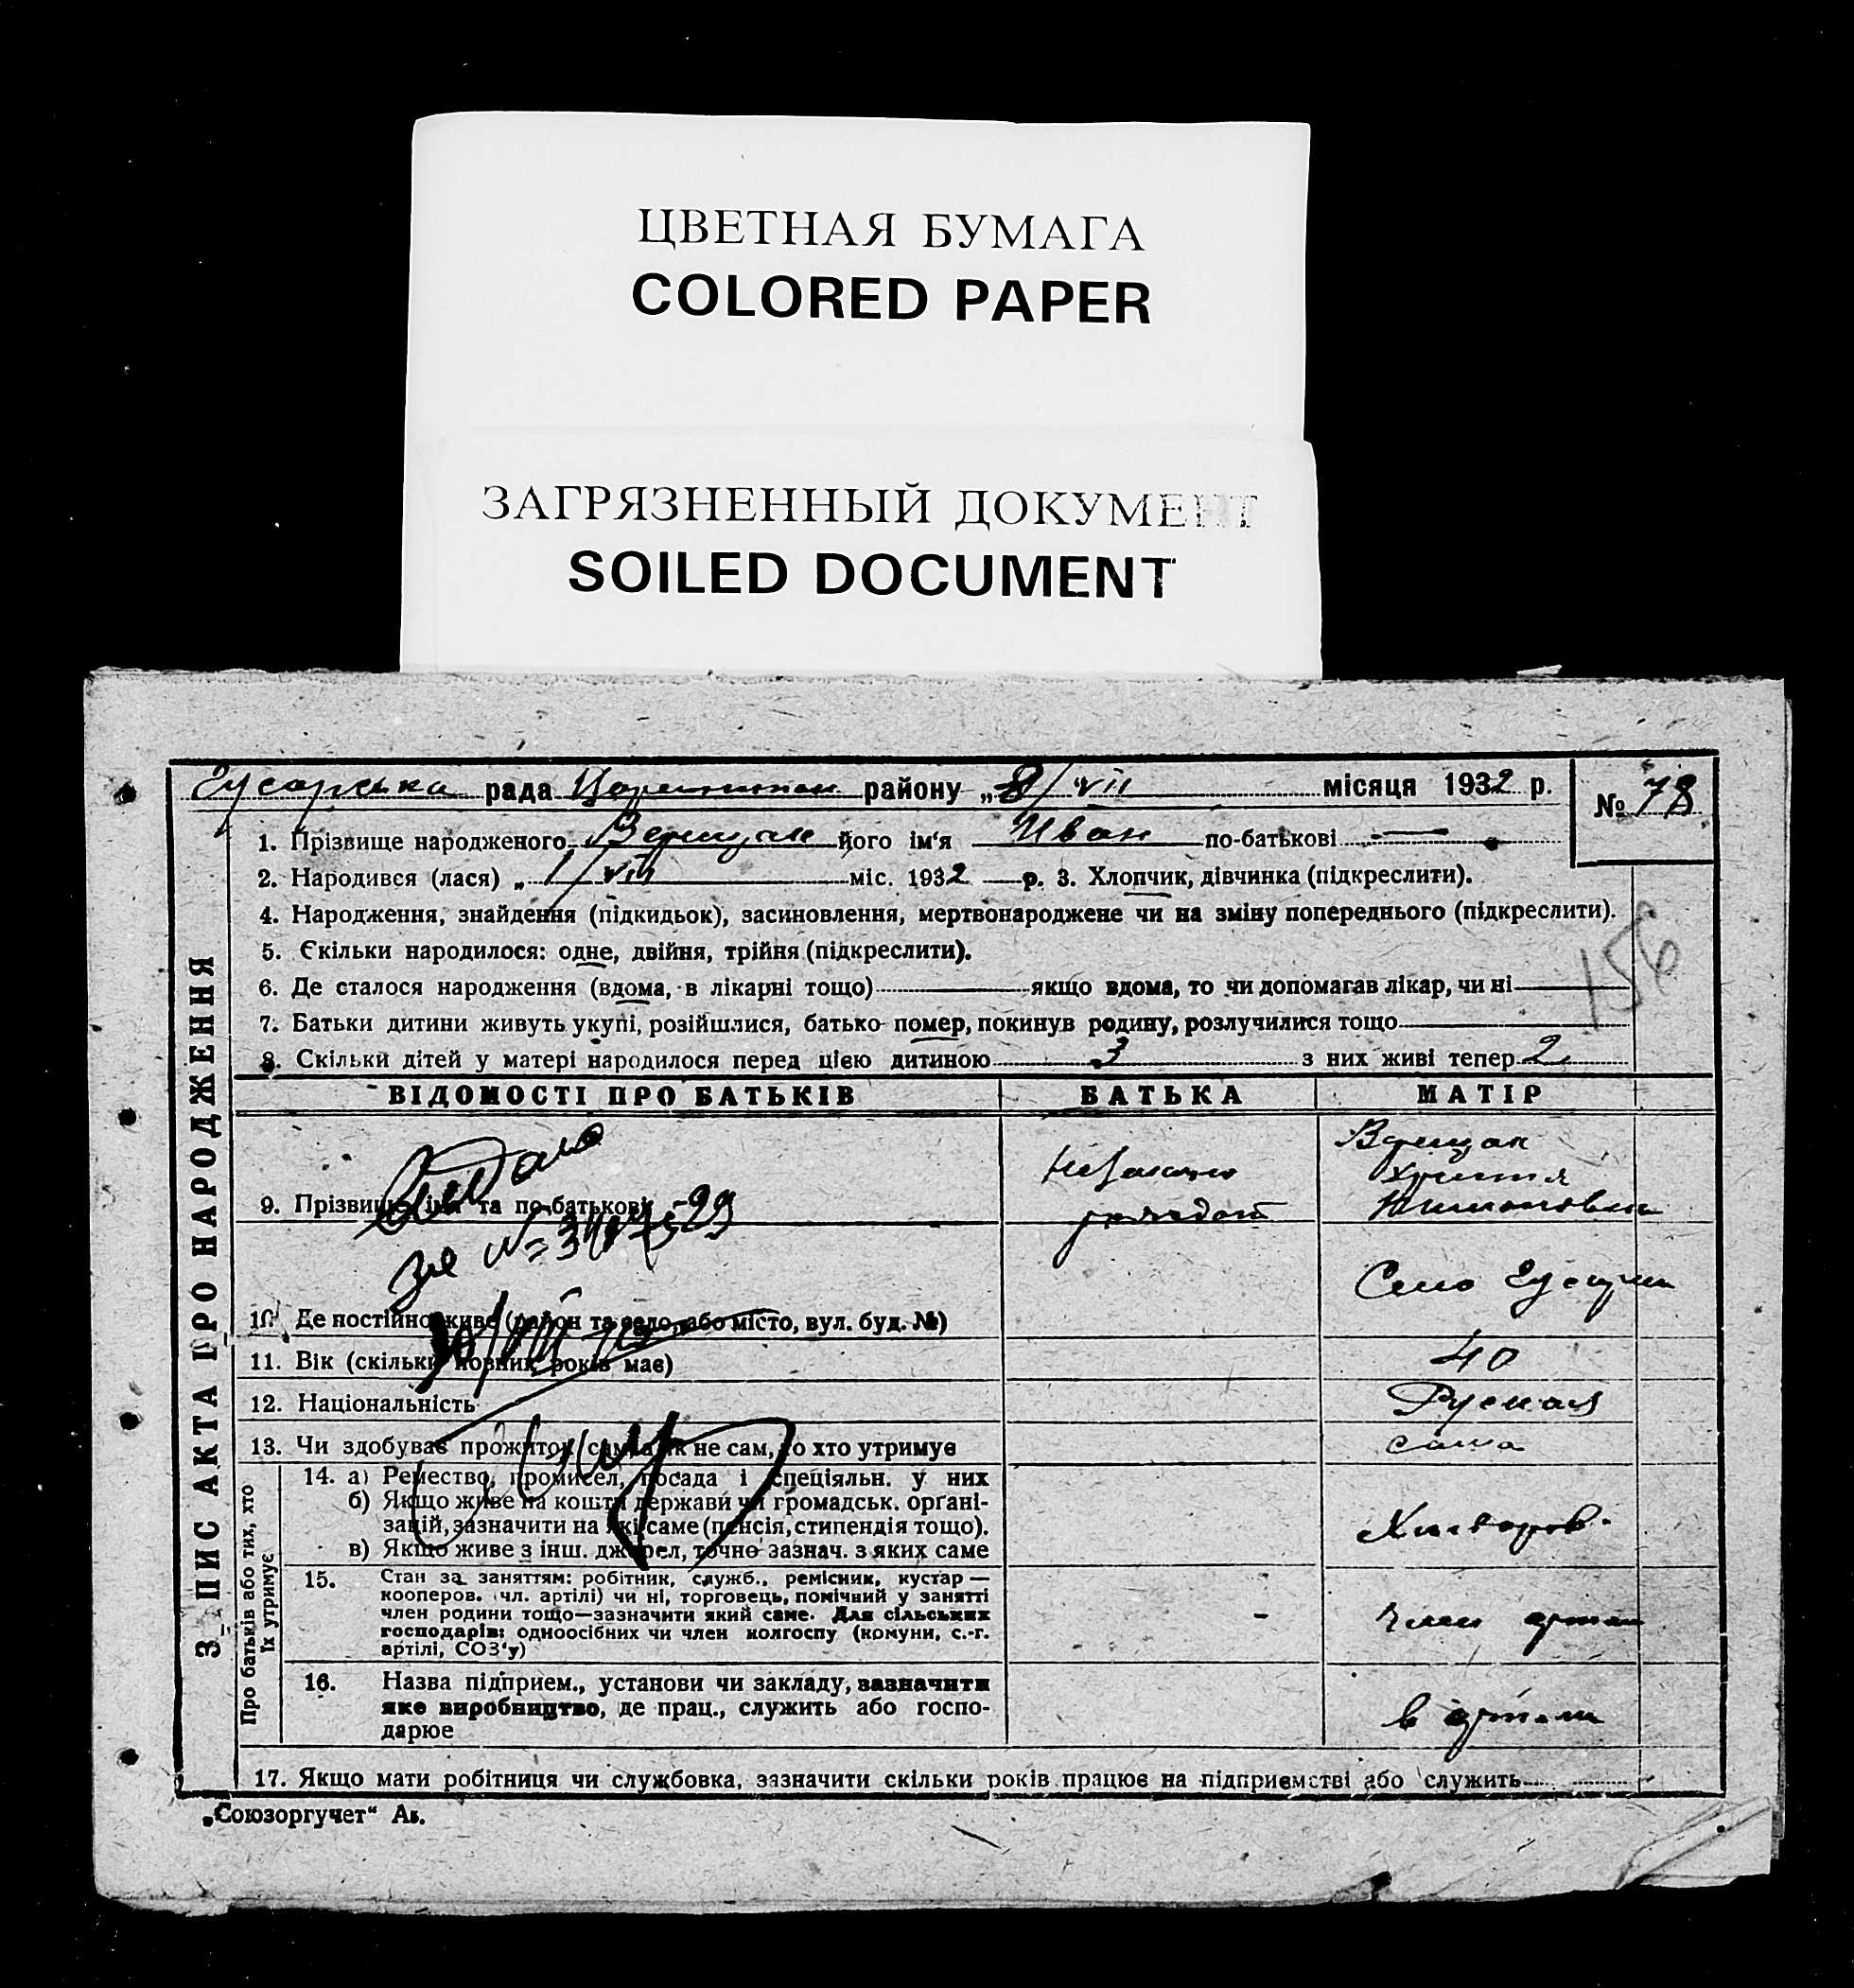 ЦВЕТНАЯ БУМАГА
COLORED PAPER
ЗАГРЯЗНЕННЫЙ ДОКУМЕНТ
SOILED DOCUMENT
Гусарська рада района району „8/VII місяця 1932 р.
№ 78
1. Прізвище народженого Верещак його ім‘я Иван по-батькові
2. Народився (лася) „1/VII міс. 1932 р. 3. Хлопчик, дівчинка (підкреслити).
4. Народження, знайдення (підкидьок), засиновлення, мертвонароджене чи на зміну попереднього (підкреслити).
5. Скільки народилося: одне, двійня, трійня (підкреслити).
156
6. Де сталося народження (вдома, в лікарні тощо) якщо вдома, то чи допомагав лікар, чи ні
7. Батьки дитини живуть укупі, розійшлися, батько помер, покинув родину, розлучилися тощо
8. Скільки дітей у матері народилося перед цією дитиною 3 з них живі тепер 2
ЗАПИС АКТА ПРО НАРОДЖЕННЯ
ВІДОМОСТІ ПРО БАТЬКІВ БАТЬКА МАТІР
9. Прізвище, ім‘я та по-батькові
10. Де постійно живе (район та село, або місто, вул. буд. №) Село
11. Вік (скільки повних років має) 40
12. Національність Руская
13. Чи здобуває прожиток сам, а як не сам, то хто утримує сама
Про батьків або тих, хто їх утримує
14. а) Ремество, промисел, посада і спеціяльн. у них
б) Якщо живе на кошти держави чи громадськ. органі-
зацій, зазначити на які саме (пенсія, стипендія тощо).
в) Якщо живе з інш. джерел, точно зазнач. з яких саме
15. Стан за заняттям: робітник, служб., ремісник, кустар —
кооперов. (чл. артілі) чи ні, торговець, помічний у занятті
член родини тощо—зазначити який саме. Для сільських
господарів: одноосібних чи член колгоспу (комуни, с.-г.
артілі, СОЗ‘у)
член артели
16. Назва підприєм., установи чи закладу, зазначити
яке виробництво, де прац., служить або госпо-
дарює
в артели
17. Якщо мати робітниця чи службовка, зазначити скільки років працює на підприємстві або служить
„Союзоргучет“ Ав.